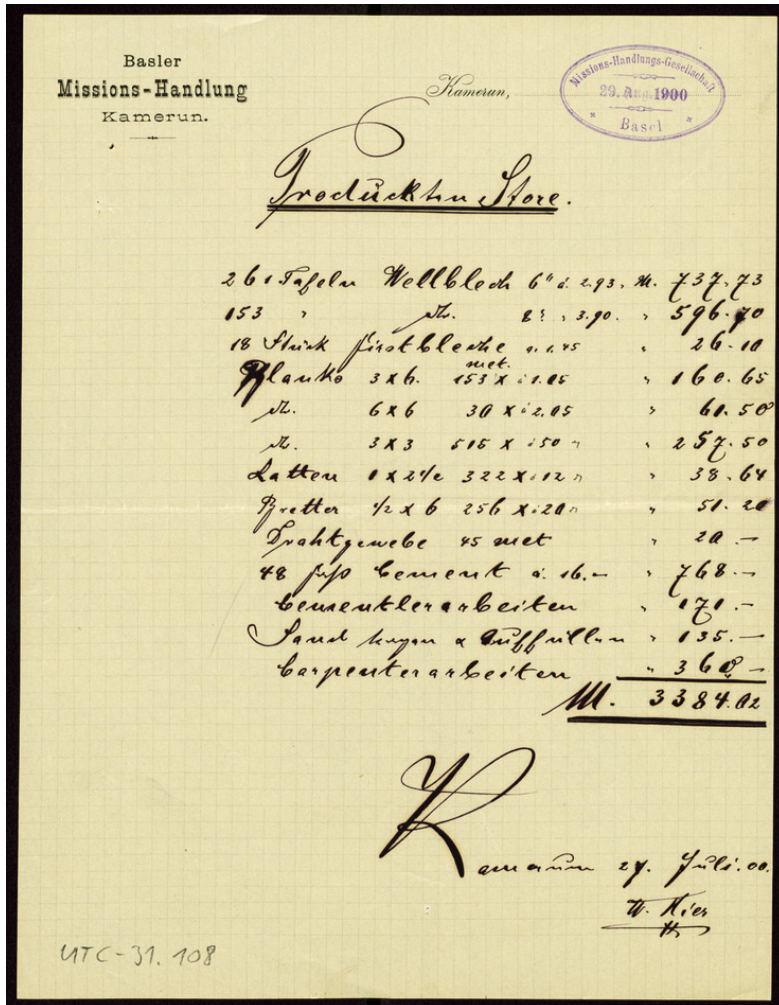 Basler
Missions-Handlung
Kamerun.
Kamerun,
Missions-Handlungs-Gesellschaft
29. Aug. 1900
Basel
Produckten Store.
261 Tafeln Wellblech 6" à 2.93. M. 737.73
153 " do. 8" " 3.90. " 596.70
18 Stück Firstbleche à 1.45 " 26.10
met.
Planko 3 x 6. 153 x à 1.05 " 160.65
do. 6 x 6 30 x à 2.05 " 61.50
do. 3 x 3 515 x à 50 " " 257.50
Latten 1 x 2 1/2 322 x à 12 " " 38.64
Bretter 1/2 x 6 256 x à 20 " " 51.20
Drahtgewebe 45 met " 20.—
48 Fass Cement à 16.— " 768.—
Cementlerarbeiten " 171.—
Sand & Auffüllen " 135.—
Carpenterarbeiten " 360.—
M. 3384.02
Kamerun 27. Juli. 00.
W. Hier
UTC-31.108